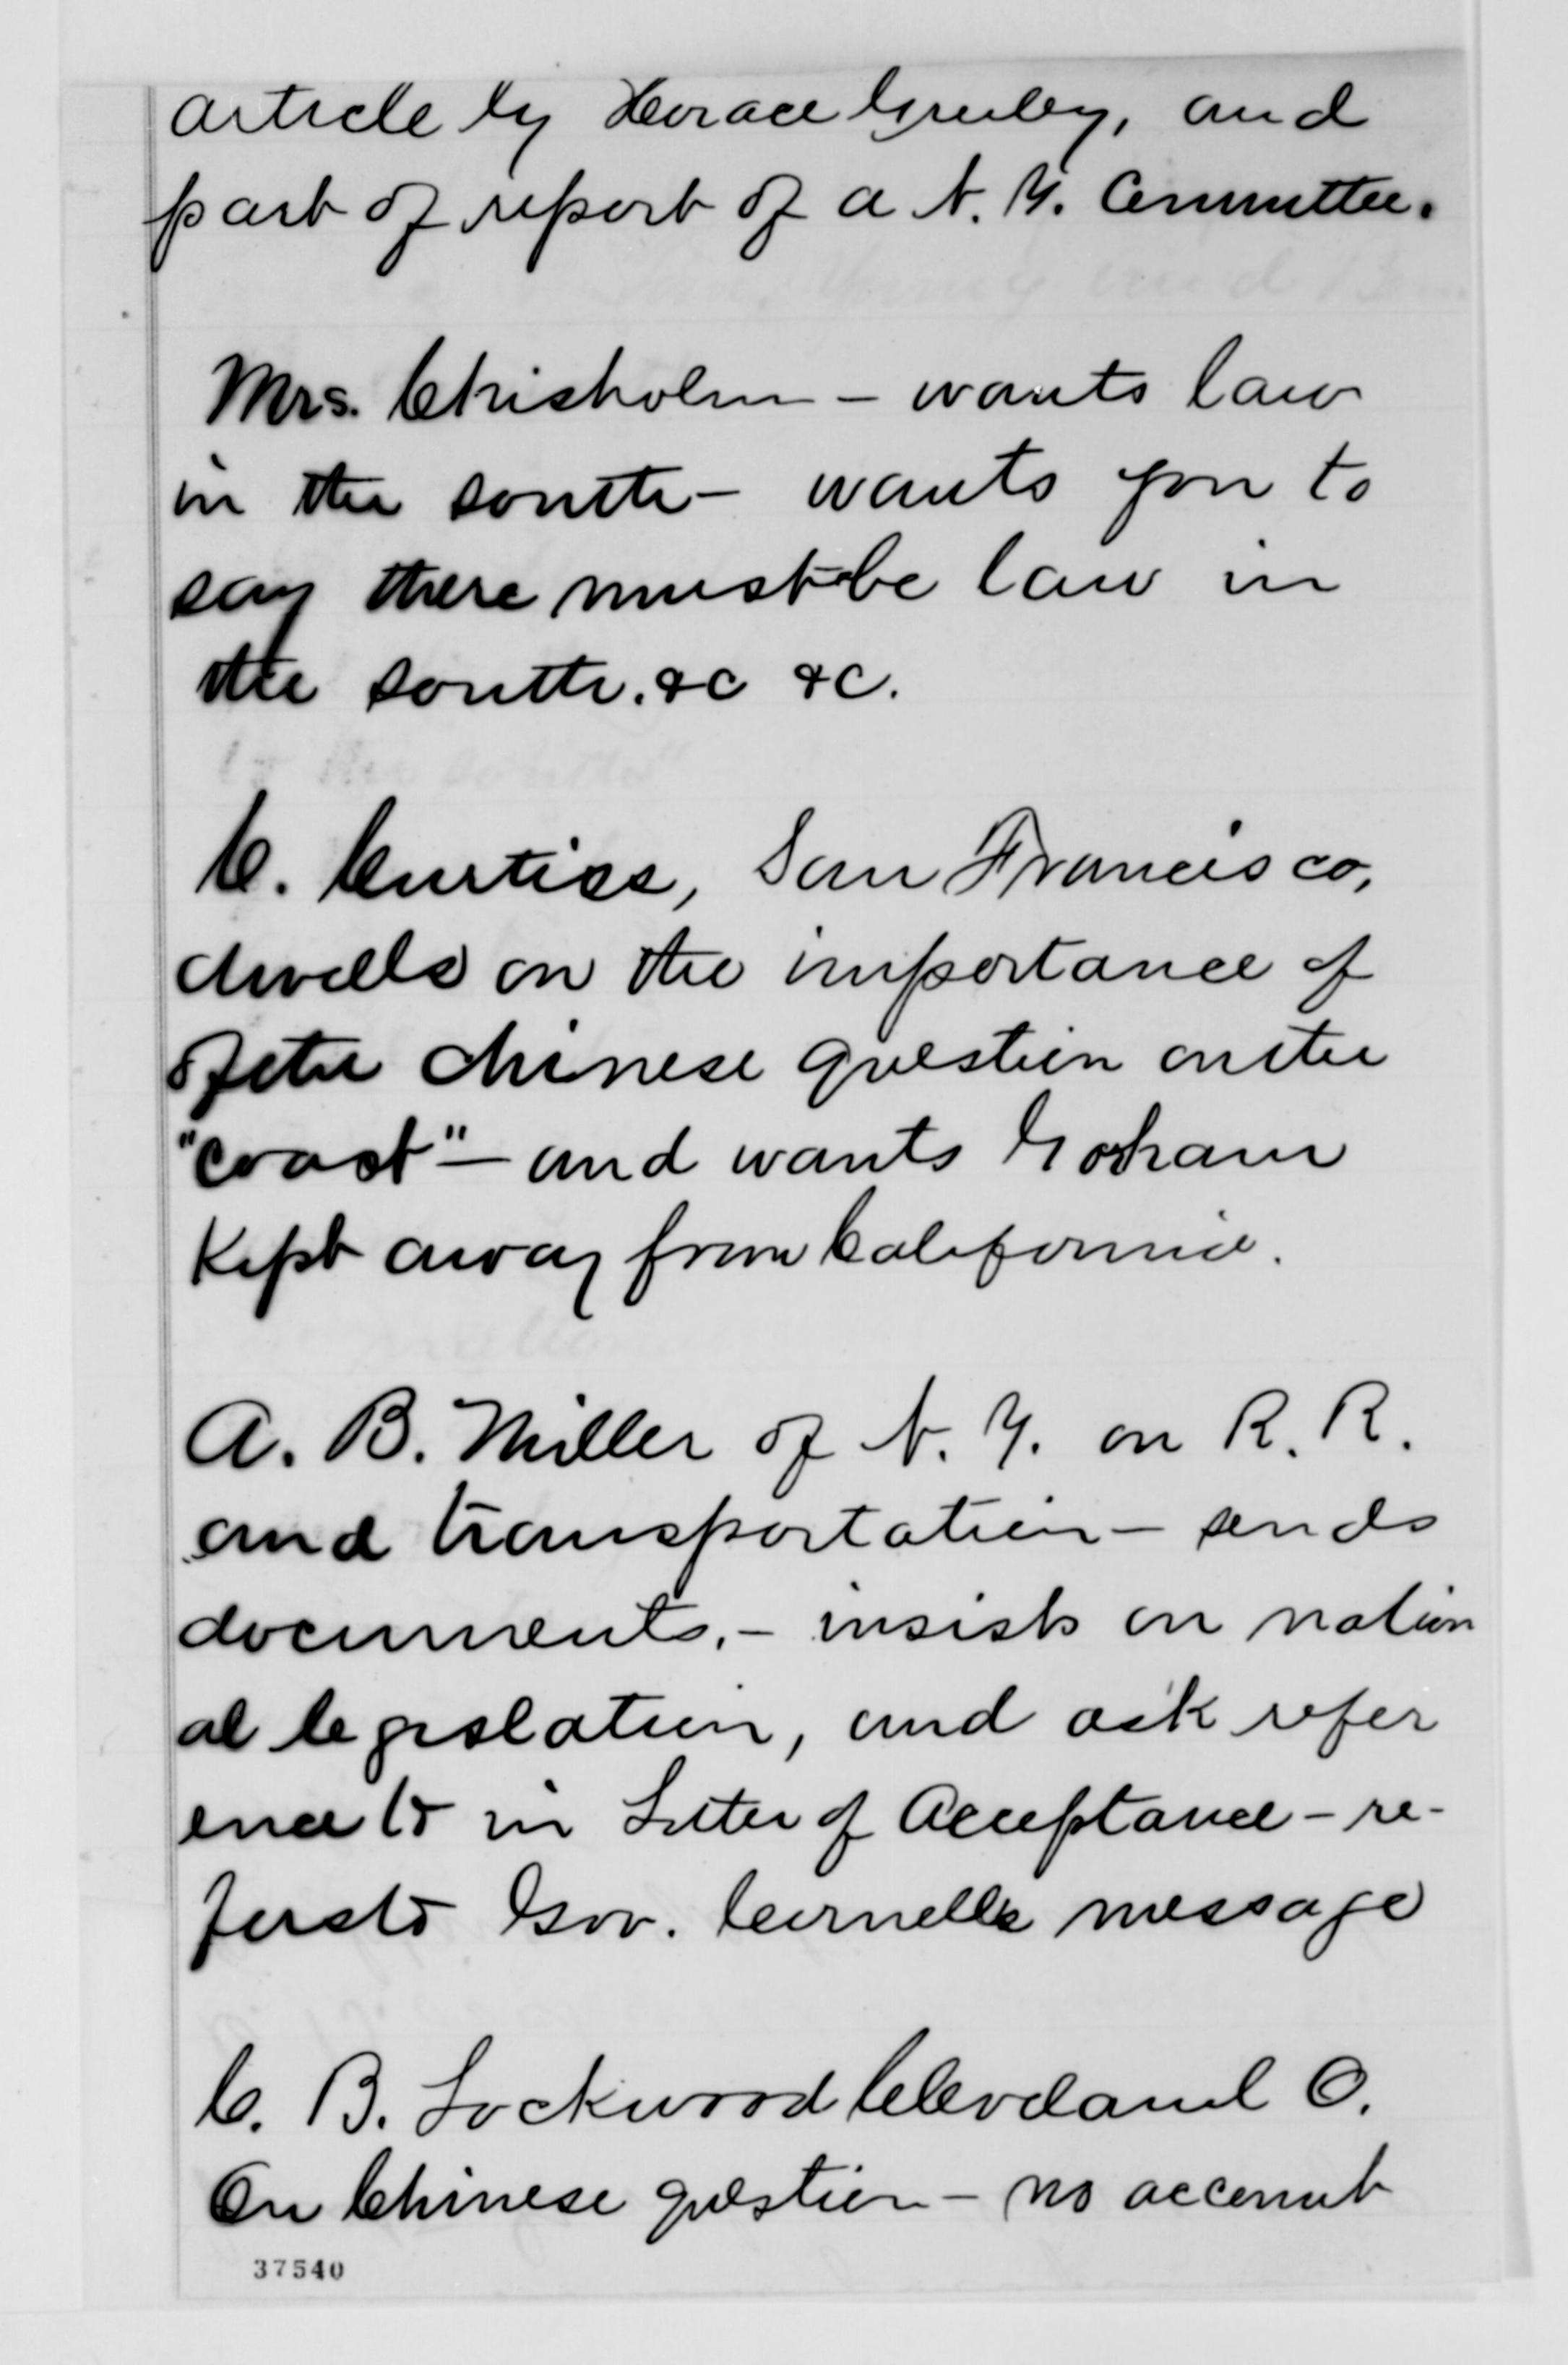 article by Horace Greeley, and
part of report of a N. Y. Committee.
Mrs. Chisholm – wants law
in the south – wants you to
say there must be law in
the south. &c &c.
C. Curtiss, San Francisco,
dwells on the importance of
of the chinese question on the
"coast" – and wants Gorham
Kept away from California.
A. B. Miller of N. Y. on R. R.
and transportation – sends
documents. – insists on nation
al legislation, and ask refer
ence to in Letter of Acceptance – re-
fers to Gov. Cornells message
C. B. Lockwood Cleveland O.
On Chinese question – no account
37540